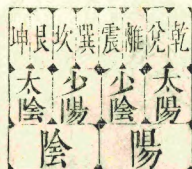 乾兌離震巽坎艮坤
太陽少陰少陽太陰
陽陰